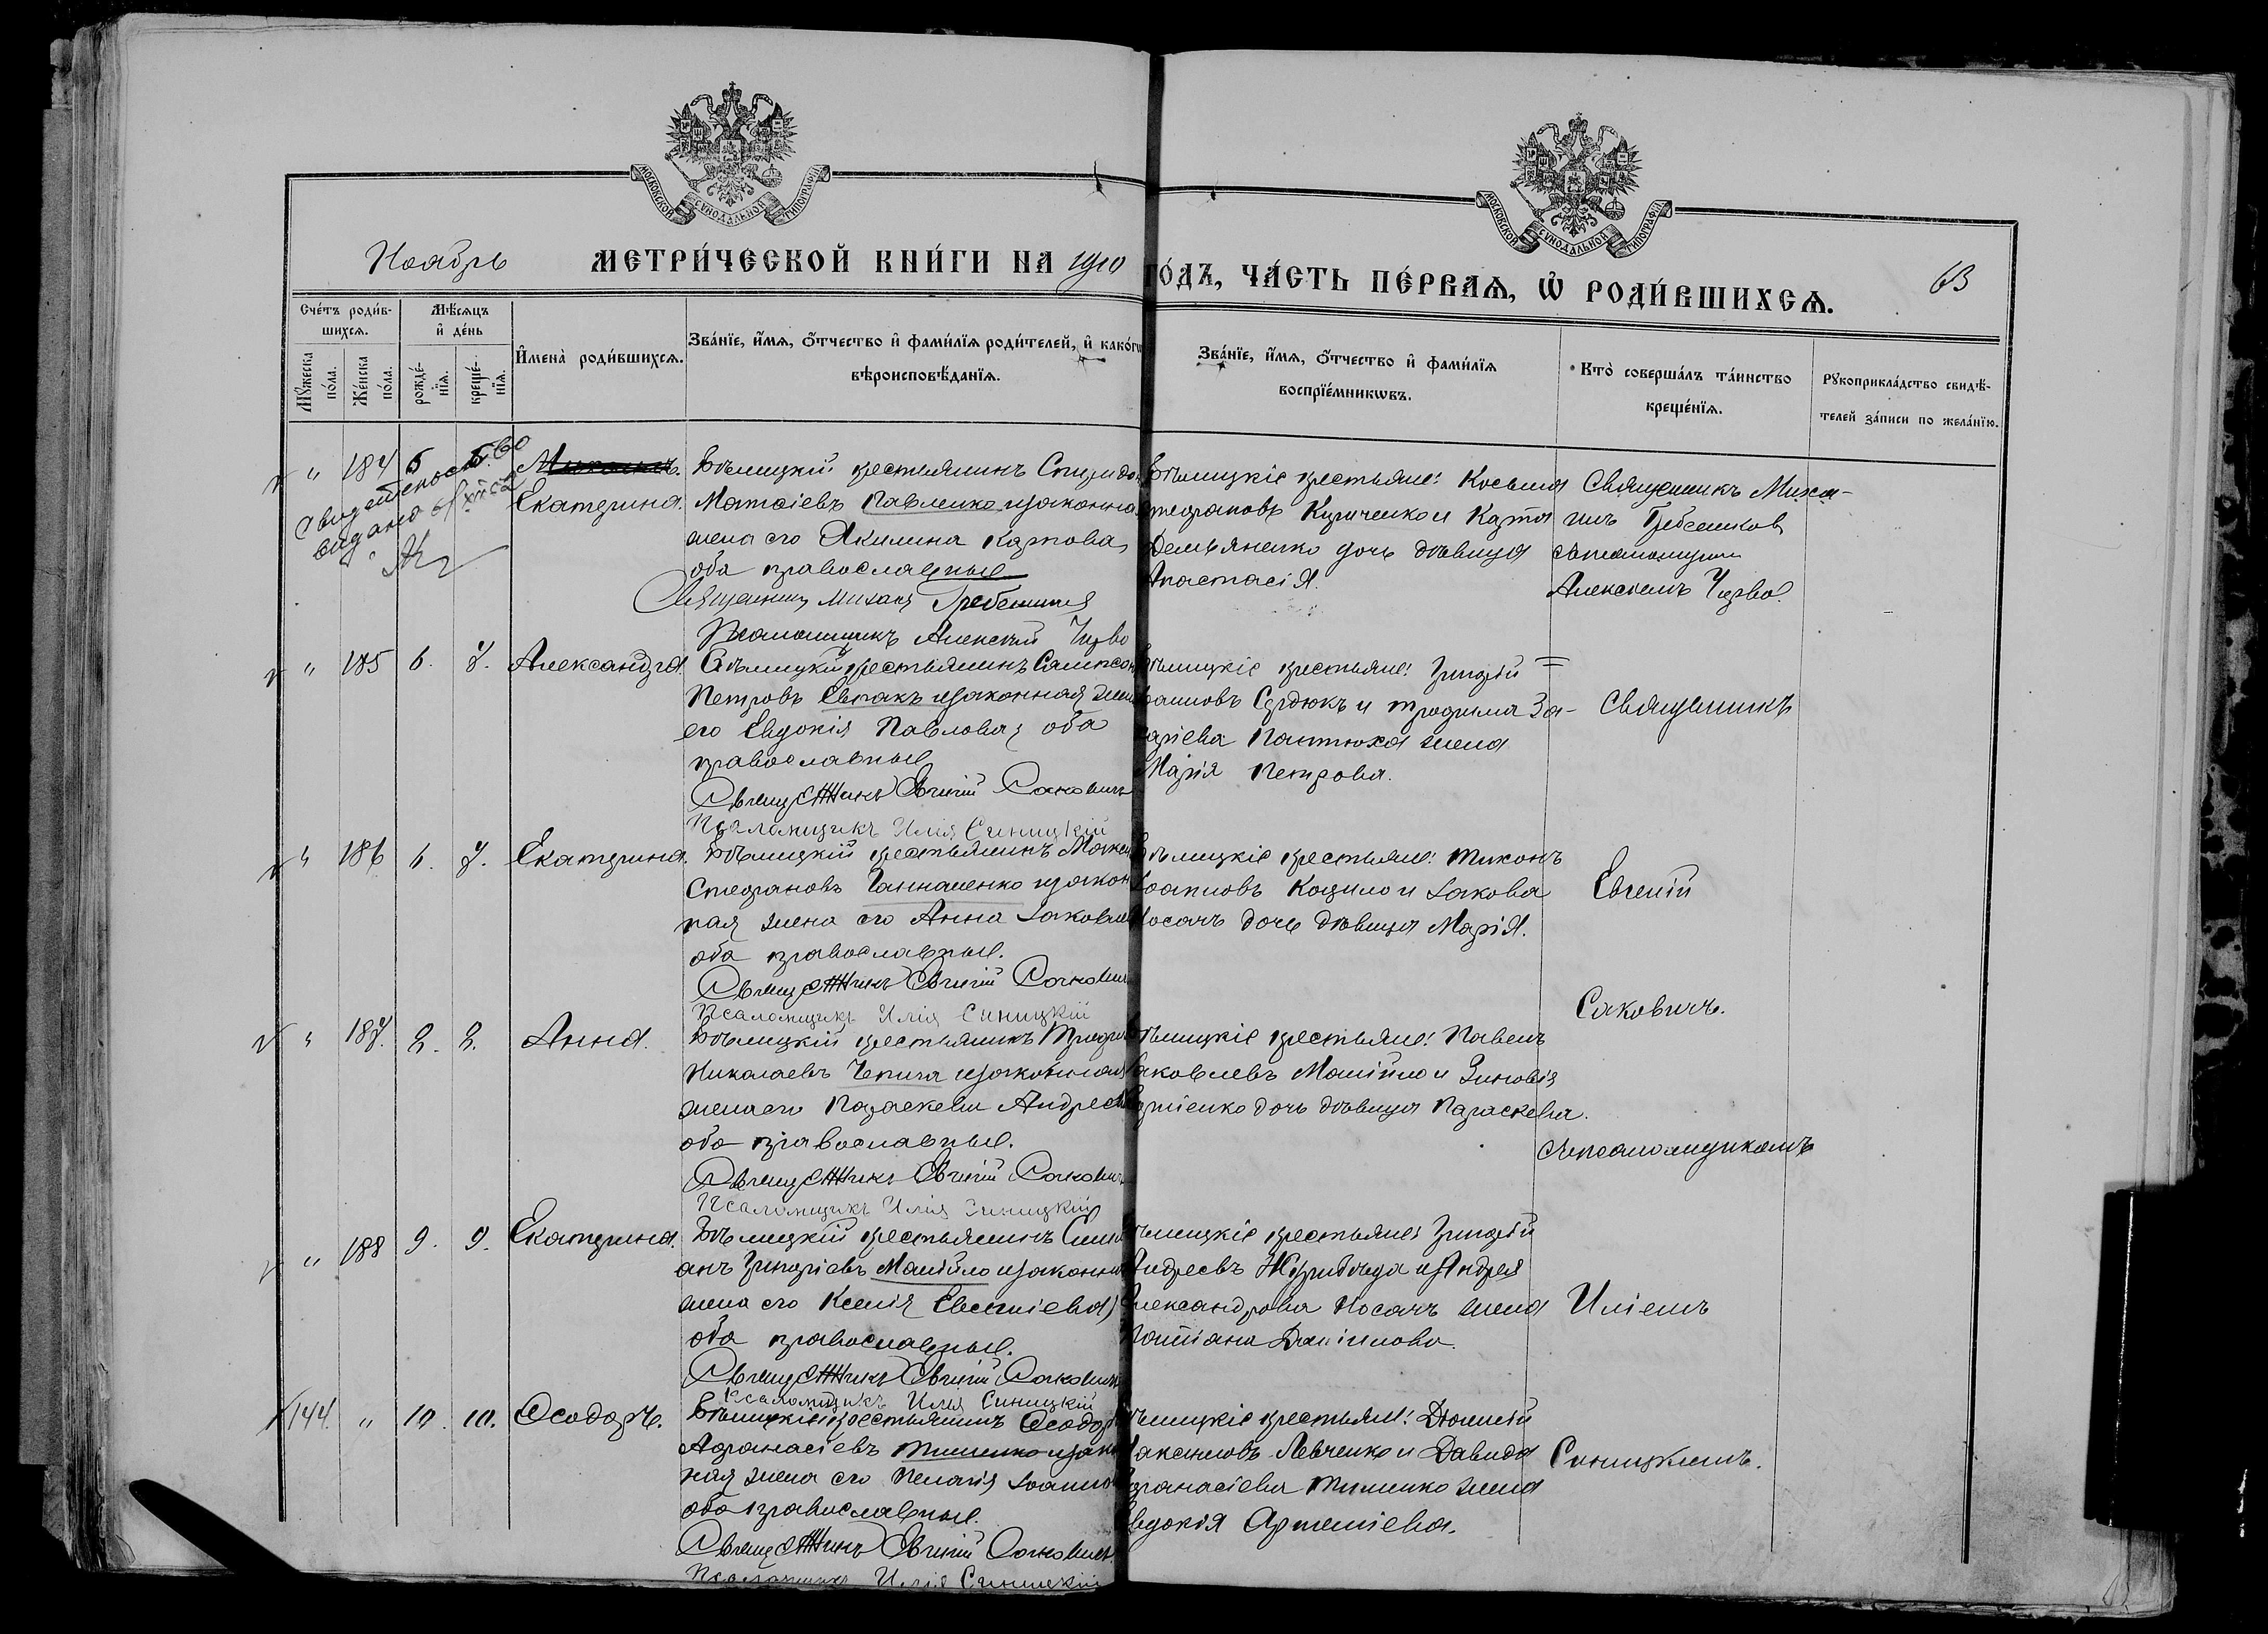 МОСКОВСКОЙ СУНОДАЛЬНОЙ ТИПОГРАФІИ
МОСКОВСКОЙ СУНОДАЛЬНОЙ ТИПОГРАФІИ
Ноябрь
МЕТРИ́ЧЕСКОЙ КНИ́ГИ НА 1910
ГО́ДЪ, ЧА́СТЬ ПЕ́РВАѦ, Ѽ РОДИ́ВШИХСѦ.
63
Сче́тъ роди́в-
шихсѧ.
Мѣ́сѧцъ
и҆ де́нь
Мꙋ́жеска
по́ла.
Же́нска
по́ла.
рожде́-
нїѧ.
креще́-
нїѧ.
И҆мена̀ роди́вшихсѧ.
Зва́нїе, и҆́мѧ, ѻ҆́тчество и҆ фами́лїѧ роди́телей, и҆ како́гѡ
вѣроисповѣ́данїѧ.
Зва́нїе, и҆́мѧ, ѻ҆́тчество и҆ фами́лїѧ
воспрїе́мникѡвъ.
Кто̀ соверша́лъ та́инство
креще́нїѧ.
Рꙋкоприкла́дство свидѣ́-
телей за́писи по жела́нїю.
" 184 5
Екатерина.
Бѣлицкій крестьянинъ Спиридо
Матѳіевъ Павленко и законна
жена его Акилина Карпова,
оба православные
Священникъ Михаил Гребенников
Псаломщикъ Алексій Черво
Бѣлицкіе крестьяне: Косьма
Стефановъ Кириченко и Карпа
Демьяненко дочь дѣвица
Анастасія.
Священникъ Миха-
илъ Гребенников
Алексѣемъ Черво.
" 185 6. 7. Александра.
Бѣлицкій крестьянинъ Сампсон
Петровъ Евпакъ и законная жена
его Евдокія Павлова, оба
православные
Священникъ Евгеній Саковичъ
Псаломщикъ Илія Синицкій
Бѣлицкіе крестьяне: Григорій
Іоанновъ Сердюкъ и Трофима За-
харіева Пантюха жена
Марія Петрова.
Священникъ
" 186 6. 7. Екатерина.
Бѣлицкій крестьянинъ Макси
Стефановъ Ганнашенко и закон
ная жена его Анна Іаковлев
оба православные.
Священникъ Евгеній Саковичъ
Псаломщикъ Илія Синицкій
Бѣлицкіе крестьяне: Тихонъ
Іоанновъ Коцило и Іакова
Носачъ дочь дѣвица Марія.
Евгеній
Саковичъ.
" 187. 8. 8. Анна.
Бѣлицкій крестьянинъ Трофим
Николаевъ Чепига и законная
жена его Параскева Андреев
оба православные.
Священникъ Евгеній Саковичъ
Псаломщикъ Илія Синицкій
Бѣлицкіе крестьяне: Павелъ
Іаковлевъ Манійло и Зиновія
дочь дѣвица Параскева.
съ псаломщикомъ
" 188 9. 9. Екатерина.
Бѣлицкій крестьянинъ Стеф
анъ Григоріевъ Манійло и законна
жена его Ксенія Евсеніева,
оба православные.
Священникъ Евгеній Саковичъ
Псаломщикъ Илія Синицкій
Бѣлицкіе крестьяне: Григорій
Андреевъ и Андрея
Александрова Носачъ жена
Татіана Даніилова.
Иліемъ
144 " 10. 10. Ѳеодоръ.
Бѣлицкій крестьянинъ Ѳеодор
Аѳанасіевъ Тименко и закон
ная жена его Пелагія Іоаннов
оба православные.
Священникъ Евгеній Саковичъ
Псаломщикъ Илія Синицкій
Бѣлицкіе крестьяне: Діонисій
Максимовъ Левченко и Давида
Аѳанасіева Тименко жена
Евдокія Артеміева.
Синицкимъ.